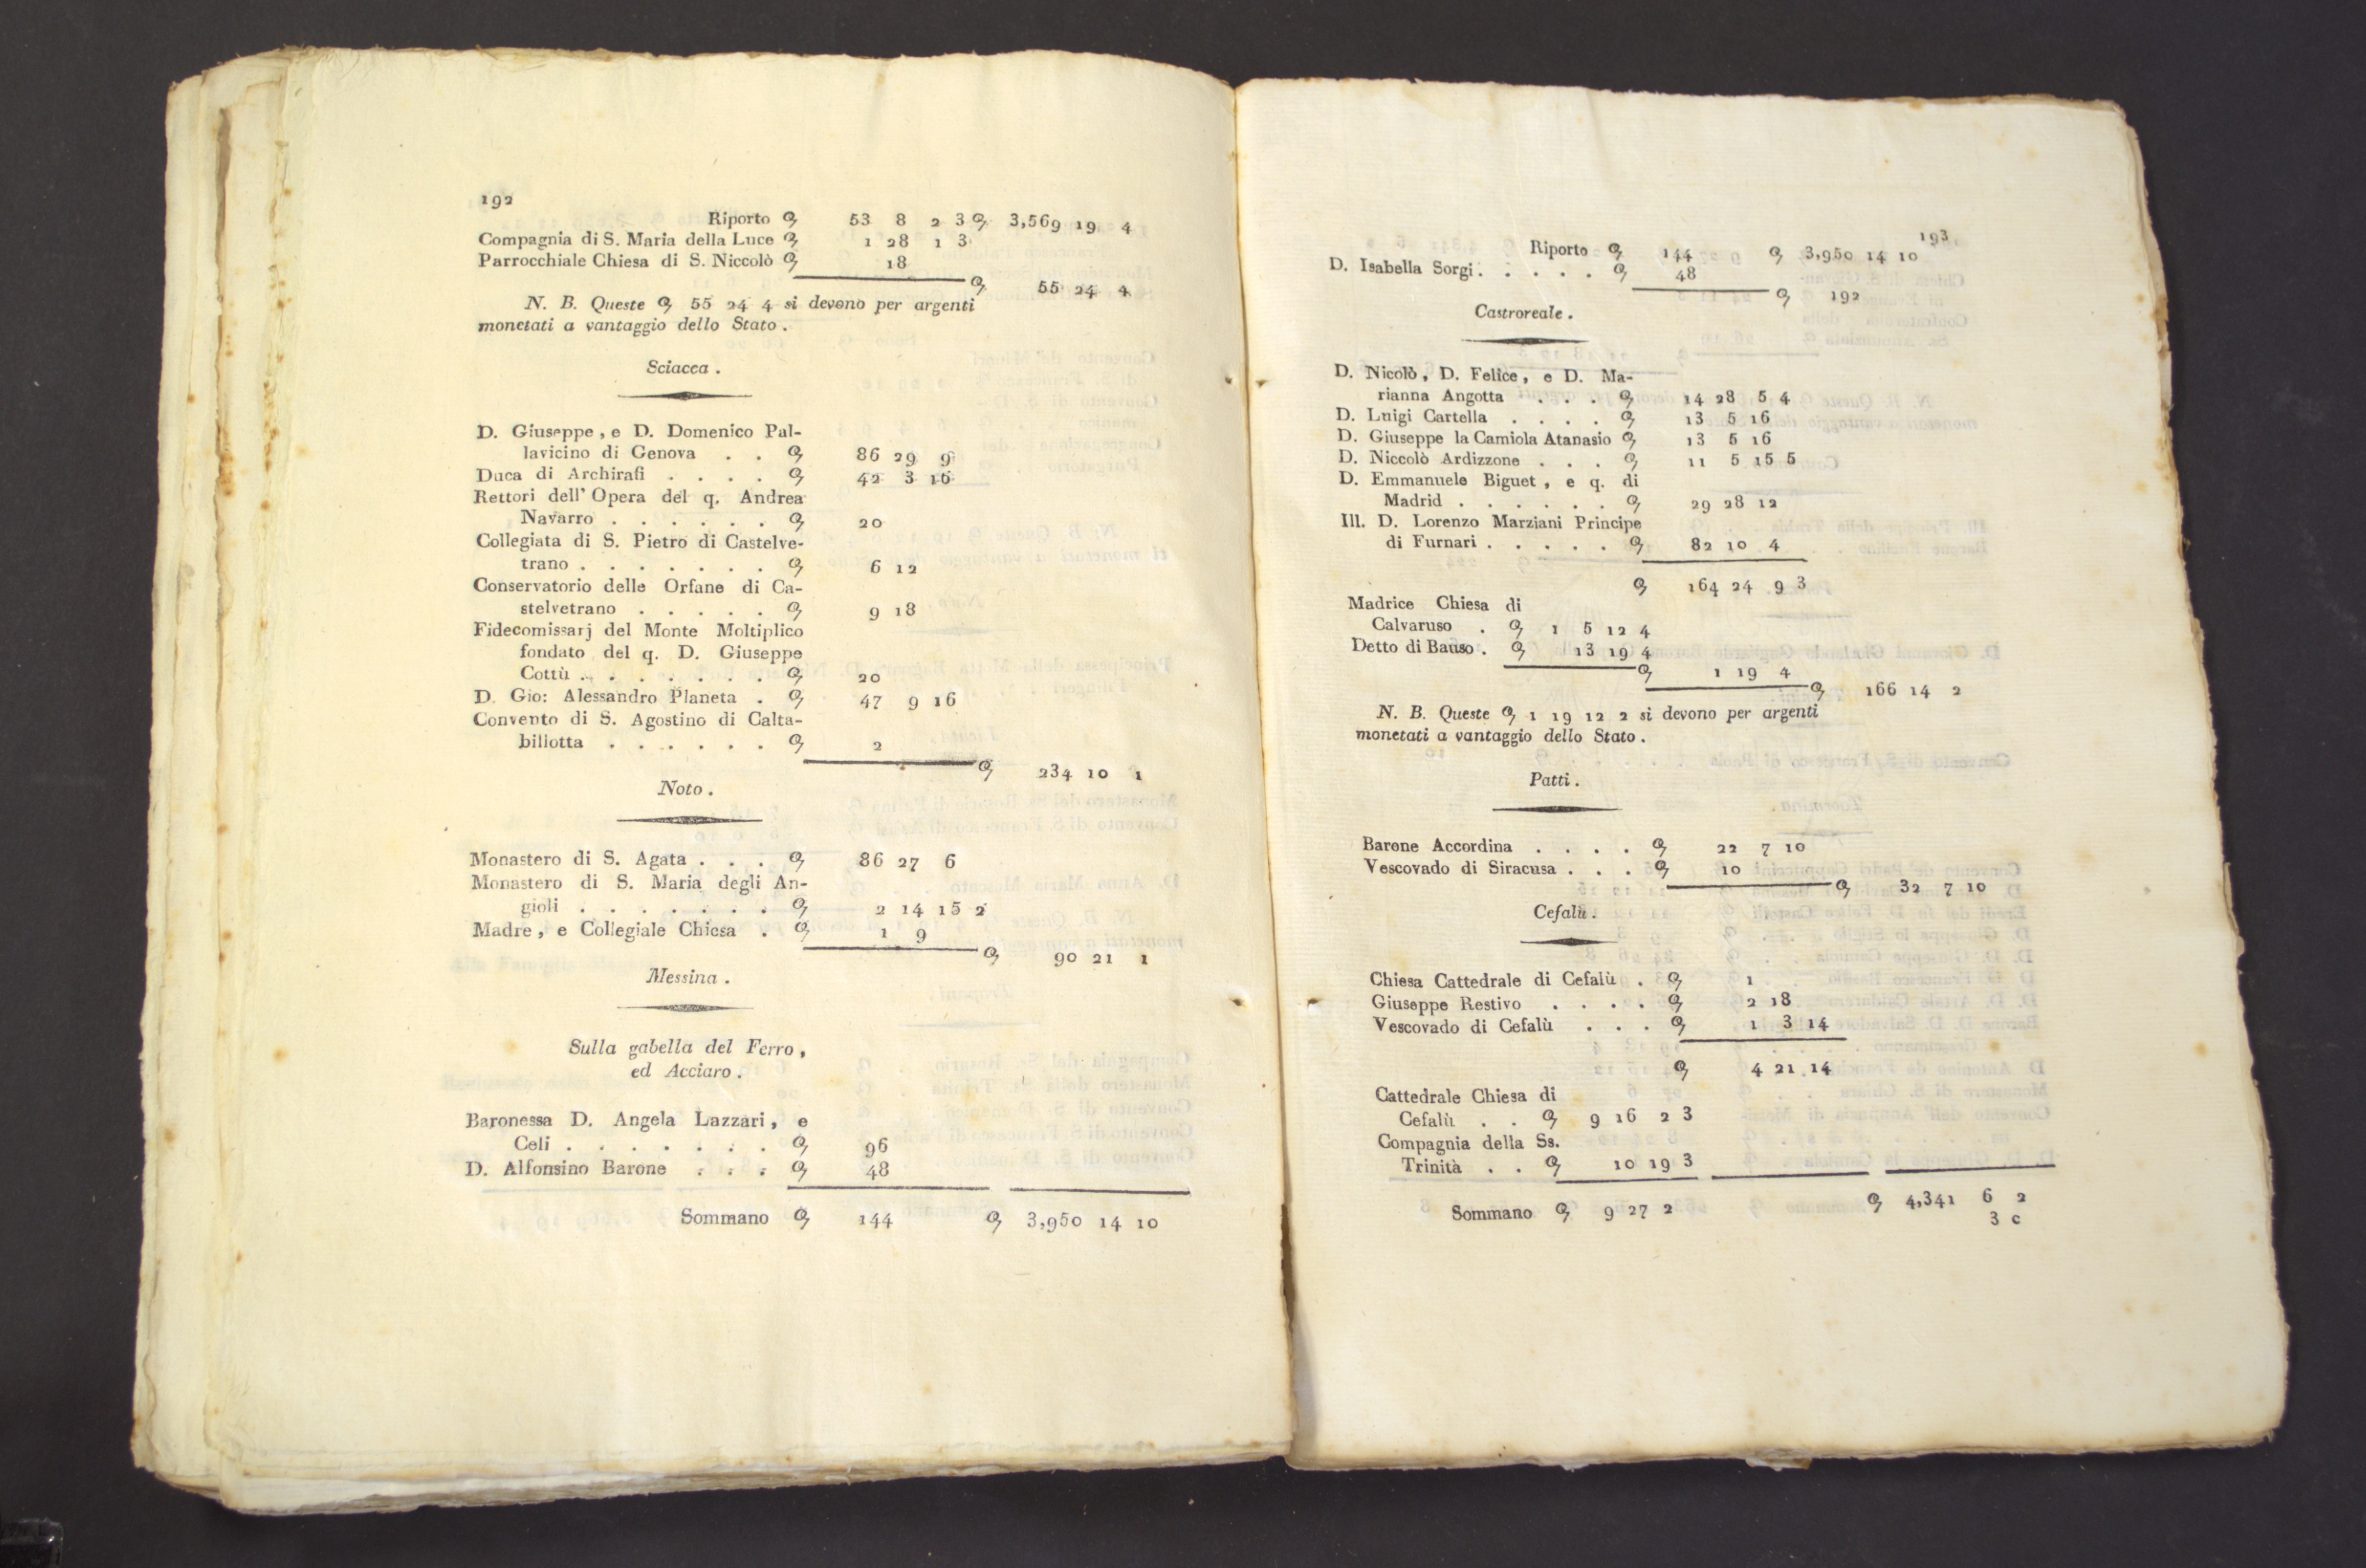 192
Riporto ꝯ 53 8 2 3 ꝯ 3,569 19 4
Compagnia di S. Maria della Luce ꝯ 1 28 1 3
Parrocchiale Chiesa di S. Niccolò ꝯ 18
ꝯ 55 24 4
N. B. Queste ꝯ 55 24 4 si devono per argenti
monetati a vantaggio dello Stato.
Sciacca.
D. Giuseppe, e D. Domenico Pal-
lavicino di Genova . . ꝯ 86 29 9
Duca di Archirafi . . . . ꝯ 42 3 16
Rettori dell' Opera del q. Andrea
Navarro . . . . . . ꝯ 20
Collegiata di S. Pietro di Castelve-
trano . . . . . . . ꝯ 6 12
Conservatorio delle Orfane di Ca-
stelvetrano . . . . . ꝯ 9 18
Fidecomissarj del Monte Moltiplico
fondato del q. D. Giuseppe
Cottù . . . . . . . ꝯ 20
D. Gio: Alessandro Planeta . ꝯ 47 9 16
Convento di S. Agostino di Calta-
billotta . . . . . . ꝯ 2
ꝯ 234 10 1
Noto.
Monastero di S. Agata . . . ꝯ 86 27 6
Monastero di S. Maria degli An-
gioli . . . . . . . ꝯ 2 14 15 2
Madre, e Collegiale Chiesa . ꝯ 1 9
ꝯ 90 21 1
Messina.
Sulla gabella del Ferro,
ed Acciaro.
Baronessa D. Angela Lazzari, e
Celi . . . . . . . ꝯ 96
D. Alfonsino Barone . . . ꝯ 48
Sommano ꝯ 144 ꝯ 3,950 14 10
193
Riporto ꝯ 144 ꝯ 3,950 14 10
D. Isabella Sorgi . . . . . ꝯ 48
ꝯ 192
Castroreale.
D. Nicolò, D. Felice, e D. Ma-
rianna Angotta . . . ꝯ 14 28 5 4
D. Luigi Cartella . . . . ꝯ 13 5 16
D. Giuseppe la Camiola Atanasio ꝯ 13 5 16
D. Niccolò Ardizzone . . . ꝯ 11 5 15 5
D. Emmanuele Biguet, e q. di
Madrid . . . . . . ꝯ 29 28 12
Ill. D. Lorenzo Marziani Principe
di Furnari . . . . . ꝯ 82 10 4
ꝯ 164 24 9 3
Madrice Chiesa di
Calvaruso . ꝯ 1 5 12 4
Detto di Bauso . ꝯ 13 19 4
ꝯ 1 19 4
ꝯ 166 14 2
N. B. Queste ꝯ 1 19 12 2 si devono per argenti
monetati a vantaggio dello Stato.
Patti.
Barone Accordina . . . . ꝯ 22 7 10
Vescovado di Siracusa . . . ꝯ 10
ꝯ 32 7 10
Cefalù.
Chiesa Cattedrale di Cefalù . ꝯ 1
Giuseppe Restivo . . . . ꝯ 2 18
Vescovado di Cefalù . . . ꝯ 1 3 14
ꝯ 4 21 14
Cattedrale Chiesa di
Cefalù . . ꝯ 9 16 2 3
Compagnia della Ss.
Trinità . . ꝯ 10 19 3
Sommano ꝯ 9 27 2 ꝯ 4,341 6 2
3 c